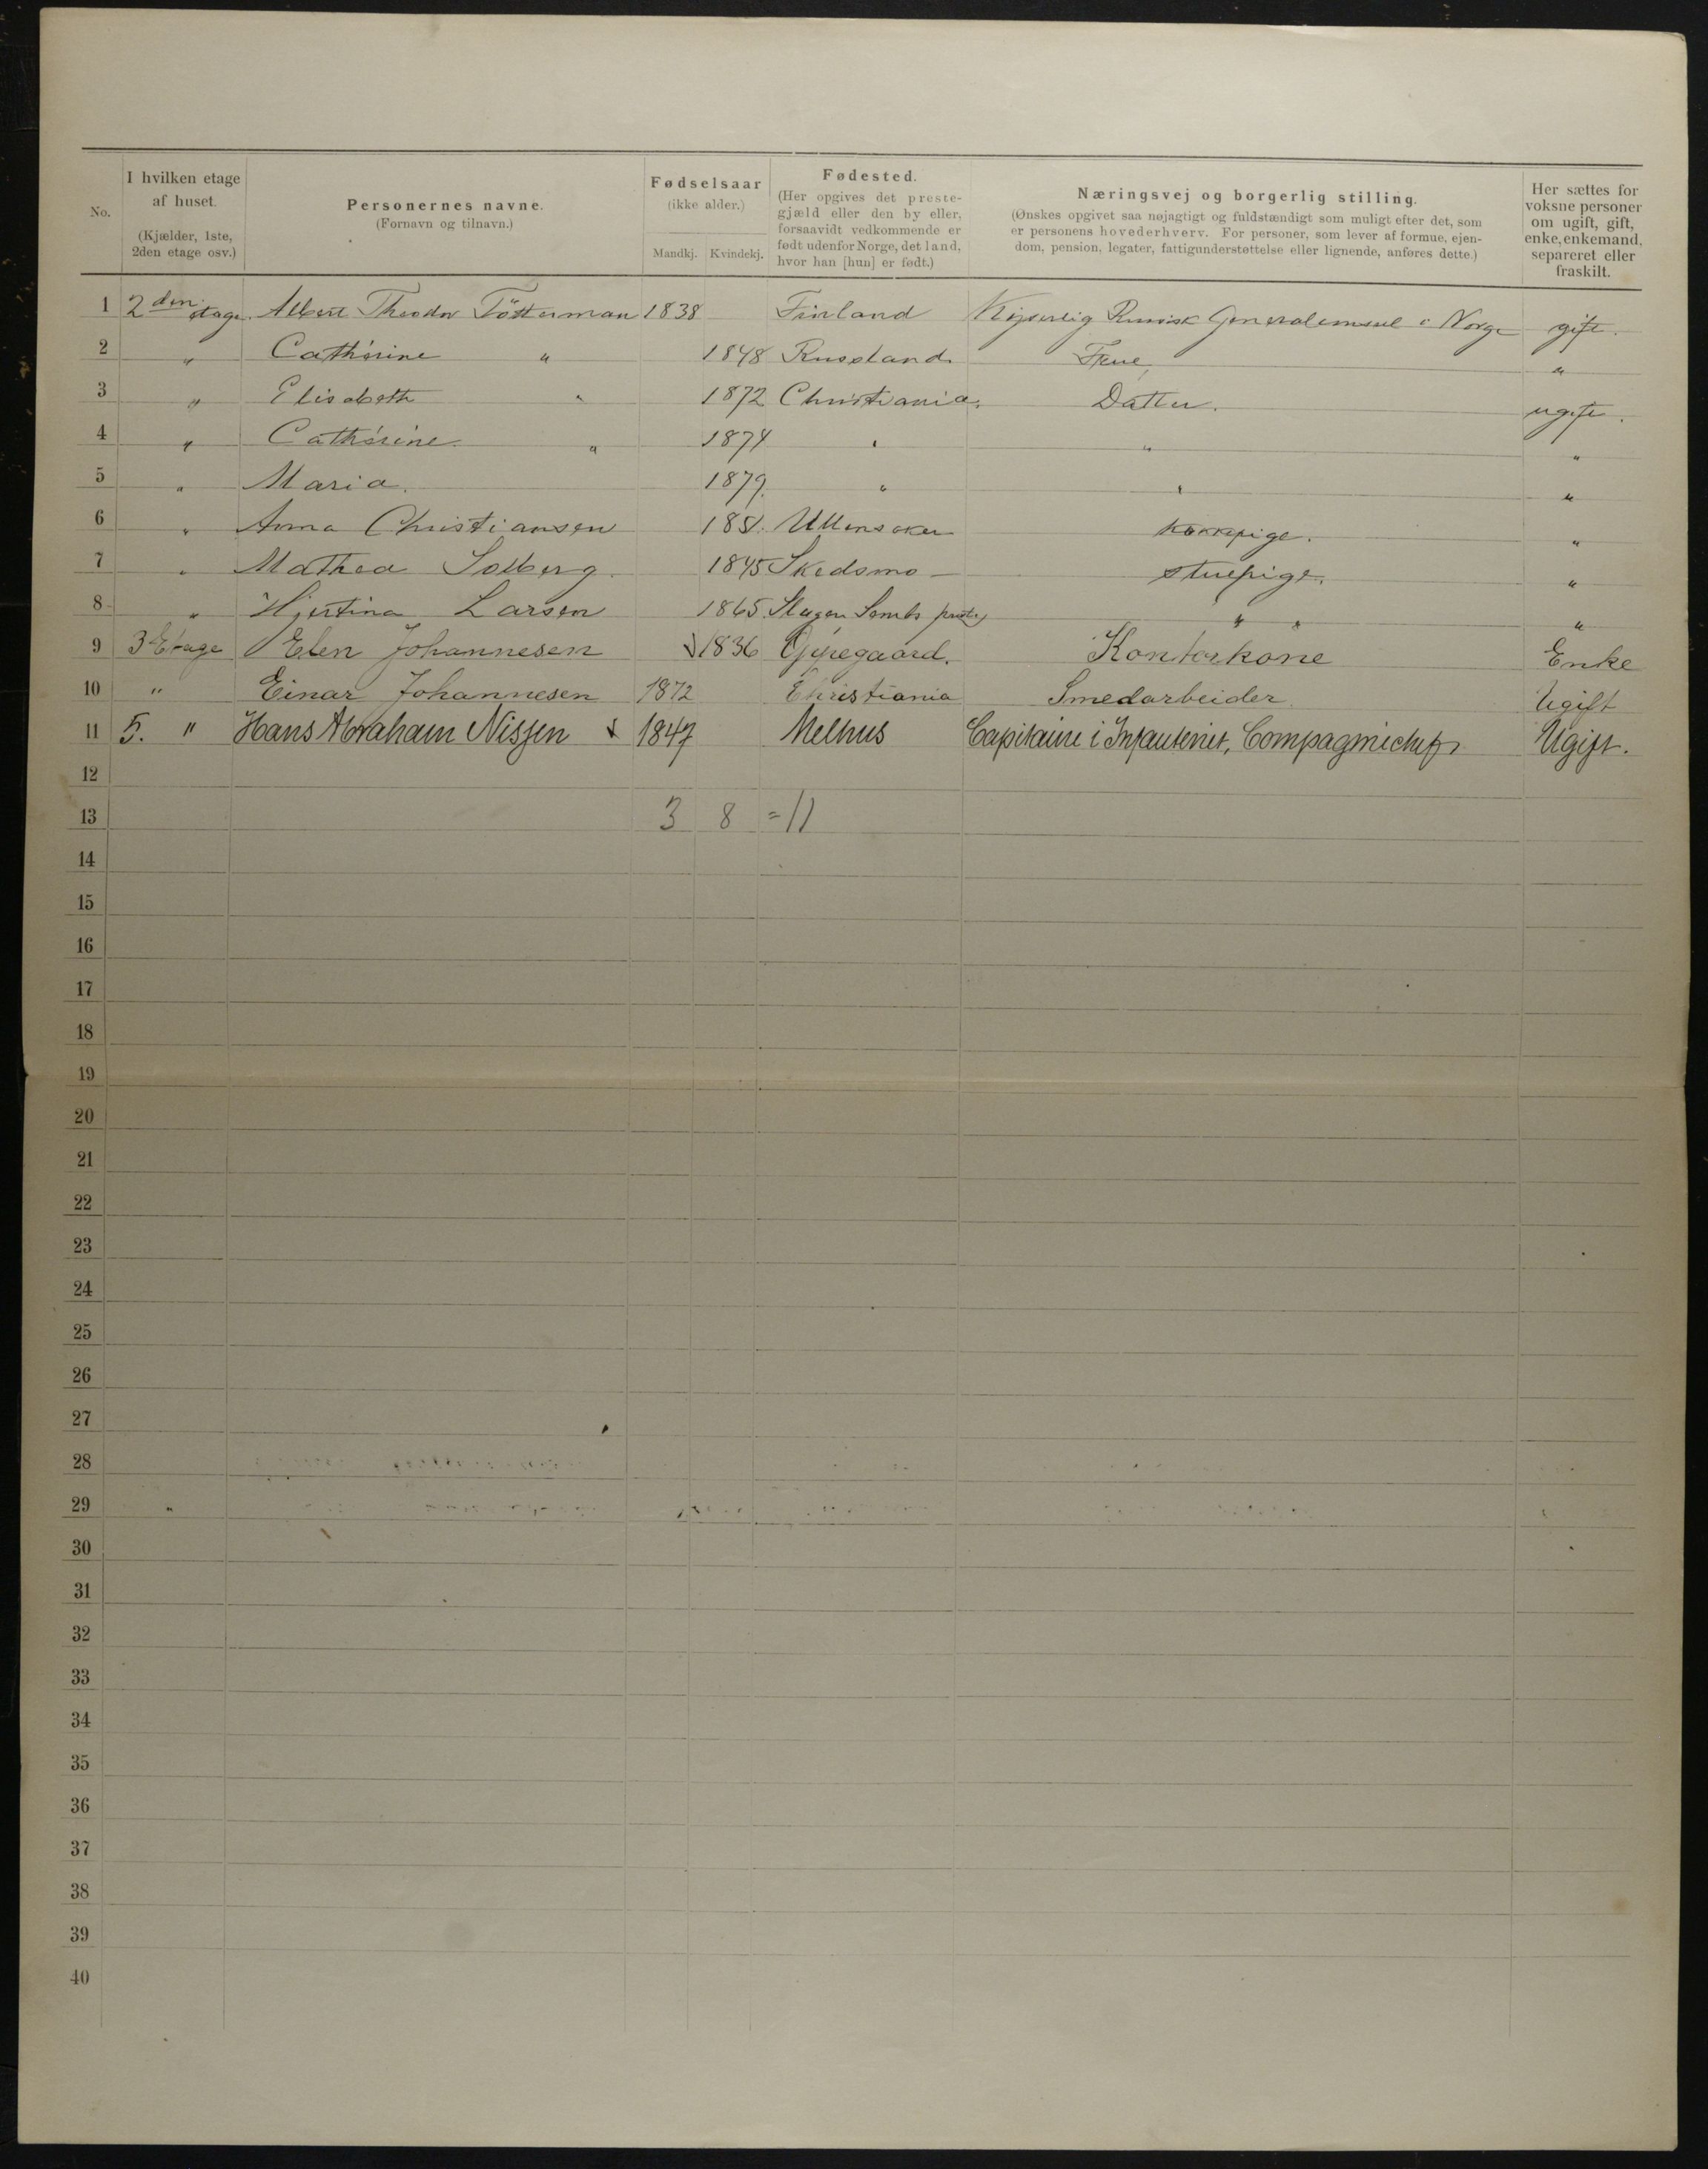 No.
I hvilken etage
af huset.
(Kjælder, 1ste,
2den etage osv.)
Personernes navne.
(Fornavn og tilnavn.)
Fødselsaar
(ikke alder.)
Mandkj. Kvindekj.
Fødested.
(Her opgives det preste-
gjæld eller den by eller,
forsaavidt vedkommende er
født udenfor Norge, det land,
hvor han [hun] er født.)
Næringsvej og borgerlig stilling.
(Ønskes opgivet saa nøjagtigt og fuldstændigt som muligt efter det, som
er personens hovederhverv. For personer, som lever af formue, ejen-
dom, pension, legater, fattigunderstøttelse eller lignende, anføres dette.)
Her sættes for
voksne personer
om ugift, gift,
enke, enkemand,
separeret eller
fraskilt.
1 2den etage. Albert Theodor Tötterman 1838 Finland Kejserlig Russisk Generalconsul i Norge gift.
2 " Cathérine " 1848 Russland. Frue, "
3 " Elisabeth " 1872 Christiania. Datter. ugift.
4 " Cathérine " 1874 " " "
5 " Maria. 1879. " " "
6 " Anna Christiansen 1851. Ullensaker Kokkepige. "
7 " Mathea Solberg. 1845 Skedsmo stuepige. "
8 " Hjertina Larsen 1865. Sembs " " "
9 3 Etage Elen Johannesen 1836 Oppegaard. Kontorkone Enke
10 " Einar Johannesen 1872 Christiania Smedarbeider Ugift
11 5. " Hans Abraham Nissen 1847 Melhus Capitaine i Infanteriet, Compagnichef Ugift.
12
13 3 8 = 11
14
15
16
17
18
19
20
21
22
23
24
25
26
27
28
29
30
31
32
33
34
35
36
37
38
39
40